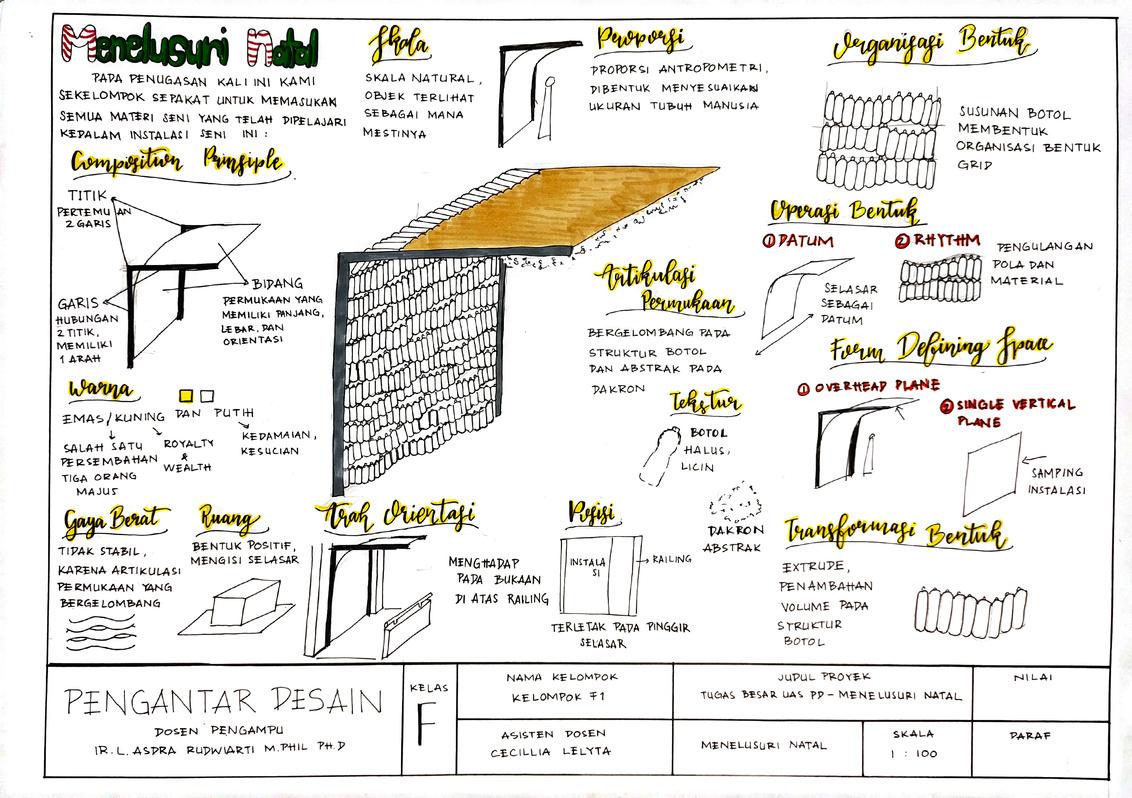 Menelusuri Natal
PADA PENUGASAN KALI INI KAMI
SEKELOMPOK SEPAKAT UNTUK MEMASUKAN
SEMUA MATERI SENI YANG TELAH DIPELAJARI
KEDALAM INSTALASI SENI INI :
Composition Prinsiple
TITIK
PERTEMUAN
2 GARIS
GARIS
HUBUNGAN
2 TITIK,
MEMILIKI
1 ARAH
BIDANG
PERMUKAAN YANG
MEMILIKI PANJANG,
LEBAR, DAN
ORIENTASI
Warna
EMAS/KUNING DAN PUTIH
SALAH SATU
PERSEMBAHAN
TIGA ORANG
MAJUS
ROYALTY
&
WEALTH
KEDAMAIAN,
KESUCIAN
Gaya Berat
TIDAK STABIL,
KARENA ARTIKULASI
PERMUKAAN YANG
BERGELOMBANG
Ruang
BENTUK POSITIF,
MENGISI SELASAR
Arah Orientasi
MENGHADAP
PADA BUKAAN
DI ATAS RAILING
Posisi
INSTALA
SI
RAILING
TERLETAK PADA PINGGIR
SELASAR
Skala
SKALA NATURAL,
OBJEK TERLIHAT
SEBAGAI MANA
MESTINYA
Proporsi
PROPORSI ANTROPOMETRI,
DIBENTUK MENYESUAIKAN
UKURAN TUBUH MANUSIA
Artikulasi
Permukaan
BERGELOMBANG PADA
STRUKTUR BOTOL
DAN ABSTRAK PADA
DAKRON
Tekstur
BOTOL
HALUS,
LICIN
DAKRON
ABSTRAK
Organisasi Bentuk
SUSUNAN BOTOL
MEMBENTUK
ORGANISASI BENTUK
GRID
Operasi Bentuk
① DATUM
SELASAR
SEBAGAI
DATUM
② RHYTHM
PENGULANGAN
POLA DAN
MATERIAL
Form Defining Space
① OVERHEAD PLANE
② SINGLE VERTICAL
PLANE
SAMPING
INSTALASI
Transformasi Bentuk
EXTRUDE,
PENAMBAHAN
VOLUME PADA
STRUKTUR
BOTOL
PENGANTAR DESAIN
DOSEN PENGAMPU
IR. L. ASDRA RUDWIARTI M.PHIL PH.D
KELAS
F
NAMA KELOMPOK
KELOMPOK F1
ASISTEN DOSEN
CECILLIA LELYTA
JUDUL PROYEK
TUGAS BESAR UAS PD - MENELUSURI NATAL
MENELUSURI NATAL
SKALA
1 : 100
NILAI
PARAF